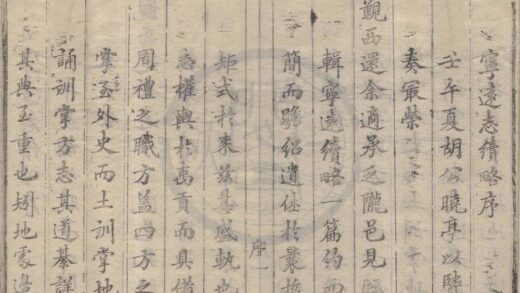 寧遠志續略序
壬午夏胡公曉亭以隣
奏最榮
覲西還余適承乏隴邑見
輯寧遠續略一篇約而
簡而賅紹遺佚於曩哲
矩式於來茲甚盛執也
序一
志權輿於禹貢而具
周禮之職方盖四方之
掌至外史而土訓掌地
誦訓掌方志其道綦詳
其典至重也矧地處邊